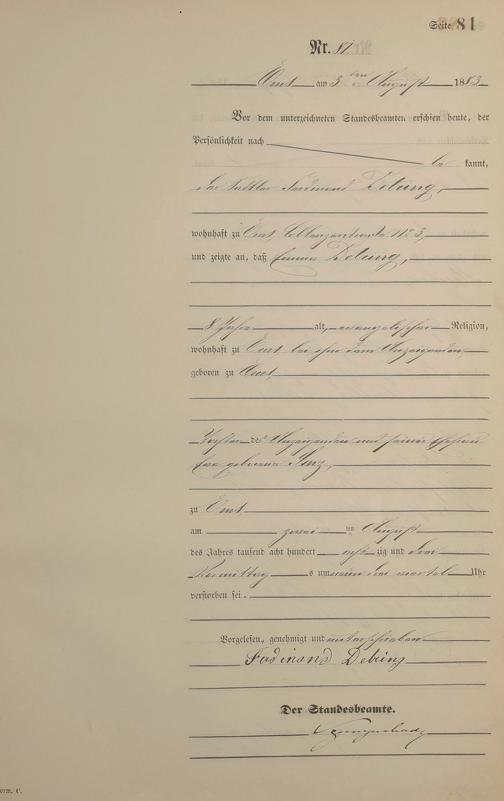 Seite 81
Nr. 81
Ems am 3 ten August 1883
Vor dem unterzeichneten Standesbeamten erschien heute, der
Persönlichkeit nach
be kannt,
der Sattler Ferdinand Debüng,
wohnhaft zu Ems, Coblenzerstraße No 3,
und zeigte an, daß Emma Debüng,
8 Jahre alt, evangelischer Religion,
wohnhaft zu Ems bei ihm dem Anzeigenden
geboren zu Ems,
Tochter des Anzeigenden und seiner Ehefrau
Eva geborene
zu Ems,
am zwei ten August
des Jahres tausend acht hundert acht zig und drei
Vormittags um neun drei viertel Uhr
verstorben sei.
Vorgelesen, genehmigt und unterschrieben
Ferdinand Debüng
Der Standesbeamte.
orm. C.